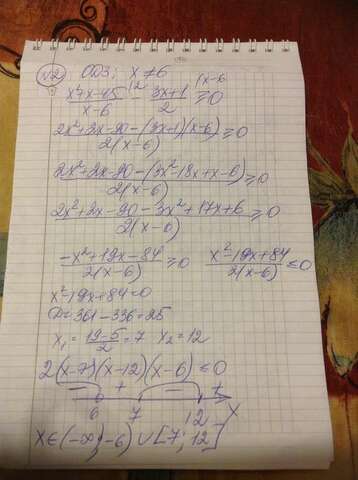 №2 ОДЗ: x ≠ 6
(x²+x-45)/(x-6) \2 - (3x+1)/2 \(x-6 ≥ 0
(2x²+2x-90-(3x+1)(x-6))/(2(x-6)) ≥ 0
(2x²+2x-90-(3x²-18x+x-6))/(2(x-6)) ≥ 0
(2x²+2x-90-3x²+17x+6)/(2(x-6)) ≥ 0
(-x²+19x-84)/(2(x-6)) ≥ 0 (x²-19x+84)/(2(x-6)) ≤ 0
x²-19x+84=0
D=361-336=25
x₁ = (19-5)/2 = 7 x₂ = 12
2(x-7)(x-12)(x-6) ≤ 0
- + - +
6 7 12 x
x∈(-∞; -6) ∪ [7; 12]